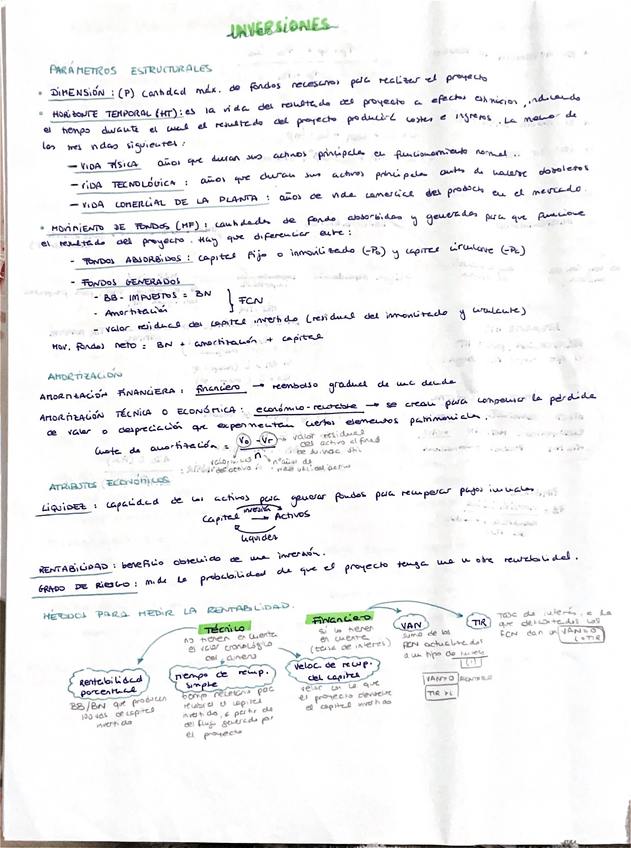 INVERSIONES
PARÁMETROS ESTRUCTURALES
• DIMENSIÓN : (P) cantidad máx. de fondos necesarios para realizar el proyecto
• HORIZONTE TEMPORAL (HT): es la vida del resultado del proyecto a efectos, indicando
el tiempo durante el cual el resultado del proyecto producirá costes e ingresos. La menor de
las tres vidas siguientes :
— VIDA FÍSICA años que duran sus activos principales en funcionamiento normal..
— VIDA TECNOLÓGICA : años que duran sus activos principales antes de hacerse obsoletos
— VIDA COMERCIAL DE LA PLANTA : años de vida comercial del producto en el mercado.
• MOVIMIENTO DE FONDOS (MF) : cantidades de fondo absorbidas y generadas para que funcione
el resultado del proyecto. Hay que diferenciar entre :
- FONDOS ABSORBIDOS : capital fijo o inmovilizado (-P₀) y capital circulante (-Pc)
- FONDOS GENERADOS
- BB - IMPUESTOS = BN
- Amortización } FCN
- valor residual del capital invertido (residual del inmovilizado y circulante)
Mov. fondos neto = BN + amortización + capital
AMORTIZACIÓN
AMORTIZACIÓN FINANCIERA : financiero → reembolso gradual de una deuda
AMORTIZACIÓN TÉCNICA O ECONÓMICA : económico-rentable → se crean para compensar la pérdida
de valor o depreciación que experimentan ciertos elementos patrimoniales.
Cuota de amortización = V₀ - Vr / n
valor residual
del activo al final
de su vida útil
del activo
nº años de
vida útil del activo
ATRIBUTOS ECONÓMICOS
LIQUIDEZ : capacidad de los activos para generar fondos para recuperar pagos iniciales.
Capital → Activos
liquidez
RENTABILIDAD : beneficio obtenido de una inversión.
GRADO DE RIESGO : mide la probabilidad de que el proyecto tenga una u otra rentabilidad.
MÉTODOS PARA MEDIR LA RENTABILIDAD.
TÉCNICO
no tienen en cuenta
el valor cronológico
del dinero
Financiero
sí lo tienen
en cuenta
(tasa de interés)
VAN
suma de los
FCN actualizados
a un tipo de interés
(i)
VAN>0
TIR >i
TIR
Tasa de interés a la
que descontados los
FCN dan un VAN=0
i=TIR
Rentabilidad
porcentual
BB/BN que producen
100 uds de capital
invertido
tiempo de recup.
simple
tiempo necesario para
recibir el capital
invertido, a partir de
del flujo generado por
el proyecto
veloc. de recup.
del capital
veloc. con la que
el proyecto devuelve
el capital invertido